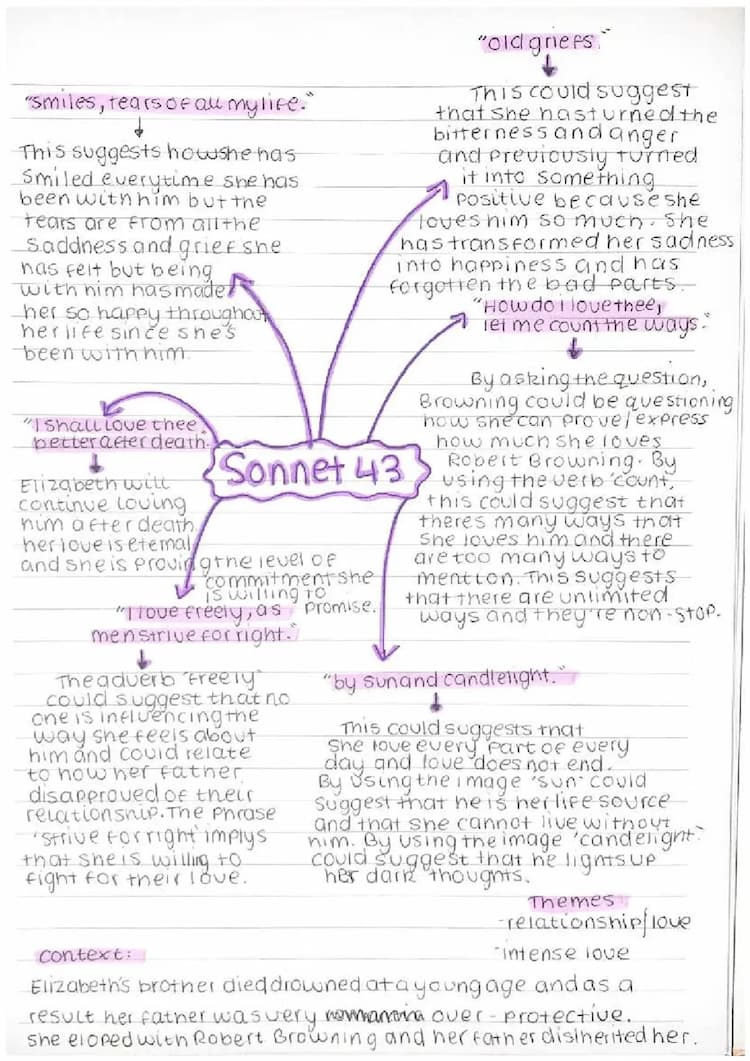 "old griefs."
This could suggest
that she has turned the
bitterness and anger
and previously turned
it into something
positive because she
loves him so much. She
has transformed her sadness
into happiness and has
forgotten the bad parts.
"smiles, tears of all my life."
This suggests how she has
smiled everytime she has
been with him but the
tears are from all the
saddness and grief she
has felt but being
with him has made
her so happy throughout
her life since she's
been with him.
"How do I love thee,
let me count the ways."
By asking the question,
Browning could be questioning
how she can prove/express
how much she loves
Robert Browning. By
using the verb 'count,
this could suggest that
theres many ways that
she loves him and there
are too many ways to
mention. This suggests
that there are unlimited
ways and they're non-stop.
"I shall love thee
better after death."
Elizabeth will
continue loving
him after death
her love is eternal
and she is proving the level of
commitment she
is willing to
promise.
Sonnet 43
"I love freely, as
men strive for right."
The adverb 'freely'
could suggest that no
one is influencing the
way she feels about
him and could relate
to how her father
disapproved of their
relationship. The phrase
'strive for right' implys
that she is willing to
fight for their love.
"by sun and candlelight."
This could suggests that
she love every part of every
day and love does not end.
By using the image 'sun' could
suggest that he is her life source
and that she cannot live without
him. By using the image 'candelight'
could suggest that he lights up
her dark thoughts.
Themes
-relationship/love
-intense love
context:
Elizabeth's brother died drowned at a young age and as a
result her father was very over-protective.
She eloped with Robert Browning and her father disiherited her.